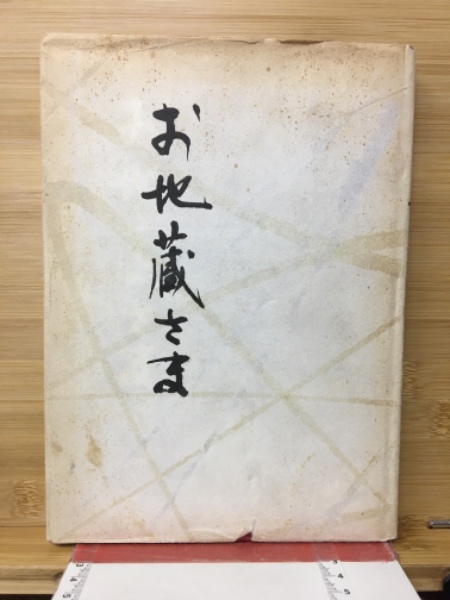 お地蔵さま